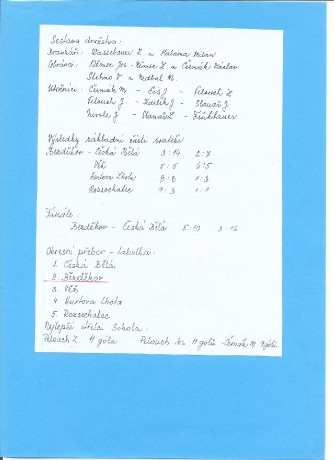 Sestava družstva:
Brankáři: Wasserbauer Z a Palama Milan
Obránci: Němec Z a Čermák Václav
Slechno V a Nedbal M.
Útočníci: Čermák M - Čís J - Pelouch Z
Pelouch J - Zadík J - Slanař J
Slanař Z - Finkbauer
Výsledky základní části soutěže
Březděkov - Česká Bělá 3:14 2:7
Věž 5:5 6:5
Hurtova Lhota 8:8 1:3
Rozsochatec 9:3 1:1
Finále:
Březděkov - Česká Bělá 5:10 3:16
Okresní přebor - tabulka:
1. Česká Bělá
2. Březděkov
3. Věž
4. Hurtova Lhota
5. Rozsochatec
Nejlepší střelci Sokola:
Pelouch Z 11 gólů Pelouch 11 gólů - Čermák M